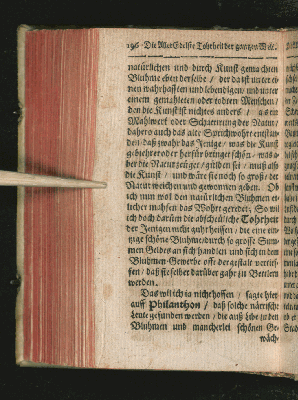 196 Die Aller Edelste Tohrheit der gantzen Welt.
natürlichen und durch Kunst gemachten
Bluhme eben derselbe / der da ist unter ei-
nen wahrhafften und lebendigen / und unter
einem gemahleten oder todten Menschen /
den die Kunst ist nichtes anders / als ein
Mahlwerk oder Schattering der Natur /
dahero auch das alte Sprichwohrt entstan-
den / daß zwahr das Jenige / was die Kunst
gebiehret oder herfür bringet schön / was a-
ber die Natur zeüget / gut sei / muß also
die Kunst / und wäre sie noch so groß / der
Natur weichen und gewonnen geben. Ob
ich nun wol den natürlichen Bluhmen ei-
licher mahsen das Wohrt geredet; So wil
ich doch darüm die abscheuliche Tohrheit
der Jenigen nicht guht heissen / die eine ein-
zige schöne Bluhme durch so grosse Sum-
men Geldes an sich handlen und sich in dem
Bluhmen-Gewerbe offt dergestalt vertief-
fen / daß sie selber darüber gahr zu Bettlern
werden.
Das wil ich ja nicht hoffen / sagte hier
auff Philanthon / daß solche närrische
Leute gefunden werden / die auß Liebe zu den
Bluhmen und mancherlei schönen Ge-
wäch-